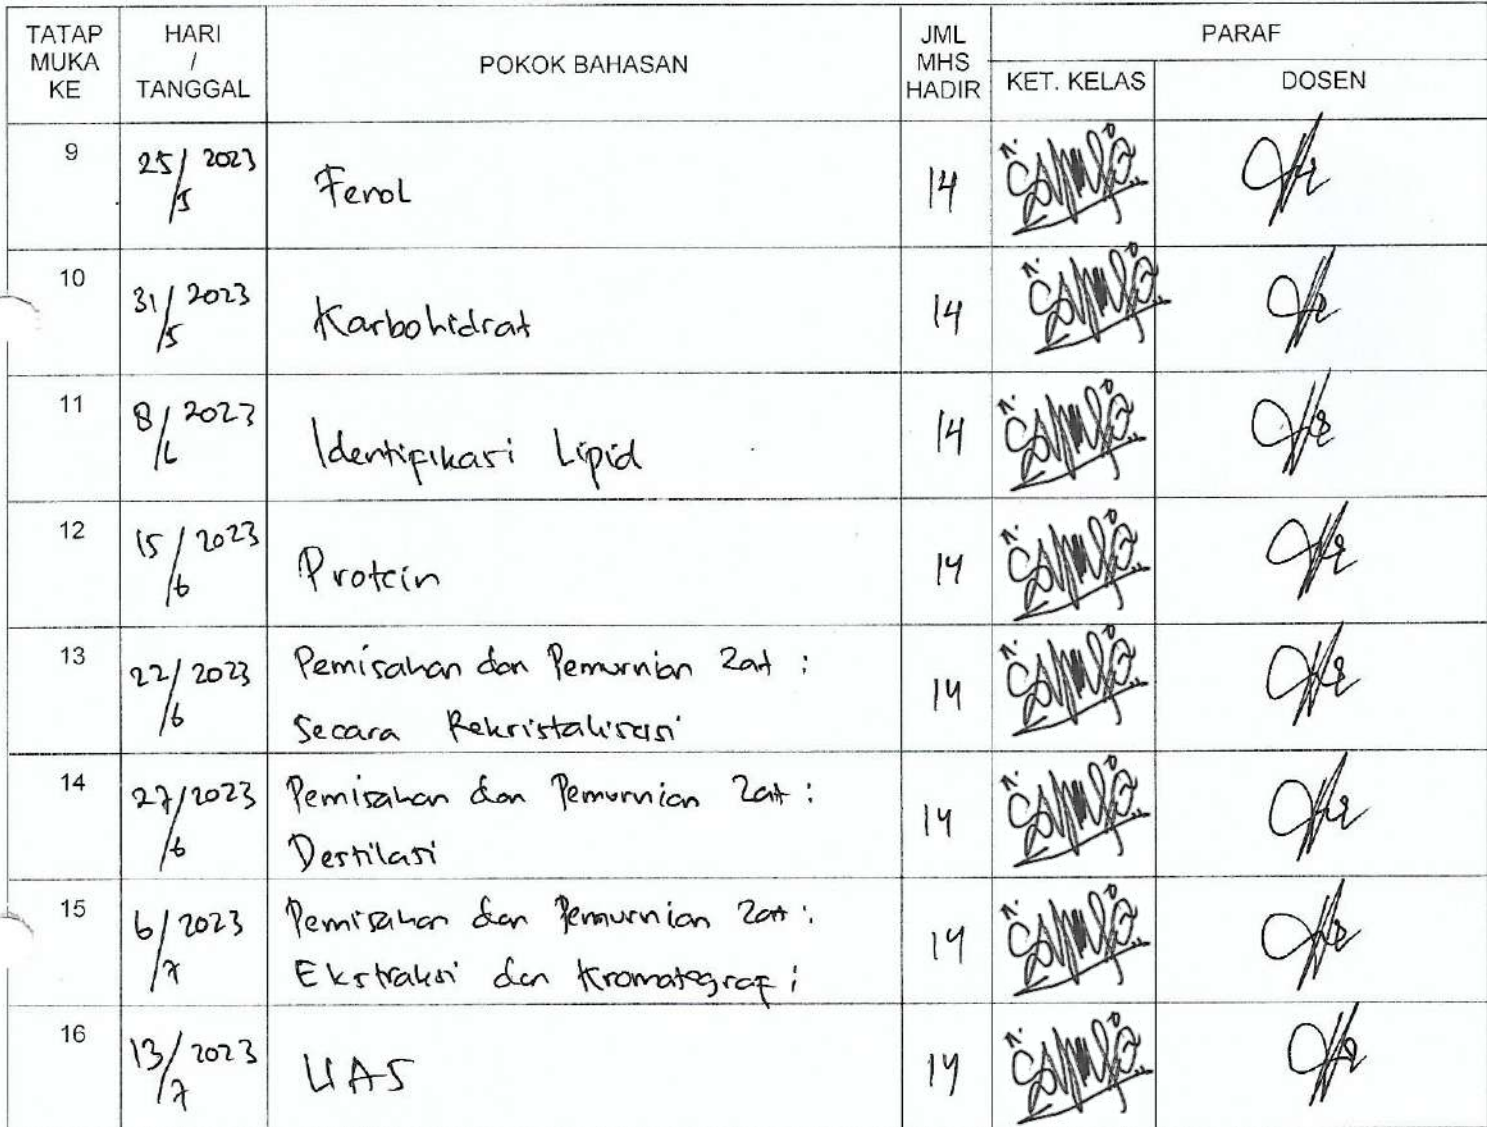 TATAP MUKA KE | HARI / TANGGAL | POKOK BAHASAN | JML MHS HADIR | PARAF
KET. KELAS | DOSEN
9 | 25/5 2023 | Fenol | 14
10 | 31/5 2023 | Karbohidrat | 14
11 | 8/6 2023 | Identifikasi Lipid | 14
12 | 15/6 2023 | Protein | 14
13 | 22/6 2023 | Pemisahan dan Pemurnian Zat :
Secara Rekristalisasi | 14
14 | 27/6 2023 | Pemisahan dan Pemurnian Zat :
Destilasi | 14
15 | 6/7 2023 | Pemisahan dan Pemurnian Zat :
Ekstraksi dan Kromatografi | 14
16 | 13/7 2023 | UAS | 14